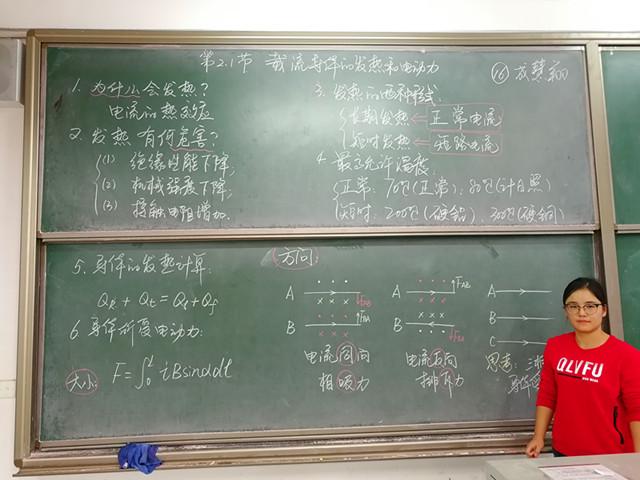 第2.1节 载流导体的发热和电动力
⑯ 成慧
1. 为什么会发热?
电流的热效应
2. 发热有何危害?
(1) 绝缘性能下降;
(2) 机械强度下降;
(3) 接触电阻增加.
3. 发热的两种形式:
长期发热 ← 正常电流
短时发热 ← 短路电流
4. 最高允许温度:
正常: 70℃(正常); 80℃(计日照)
短时: 200℃(硬铝)、300℃(硬铜)
5. 导体的发热计算:
Q_R + Q_t = Q_l + Q_f
6. 导体所受电动力:
大小: F=∫₀ˡ iBsinαdl
方向:
A F_AB
B F_BA
电流同向
相吸力
A F_AB
B F_BA
电流反向
排斥力
A
B
C
思考: 三相
导体
QLVFU